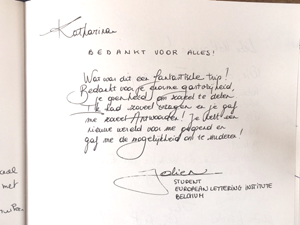 Katharina
BEDANKT VOOR ALLES!
Wat was dit een fantastische trip!
Bedankt voor je enorme gastvrijheid,
je openheid om zoveel te delen
Ik had zoveel vragen en je gaf
me zoveel Antwoorden! Je hebt een
nieuwe wereld voor me geopend en
gaf me de mogelijkheid om te studeren!
Jolien
STUDENT
EUROPEAN LETTERING INSTITUTE
BELGIUM
met